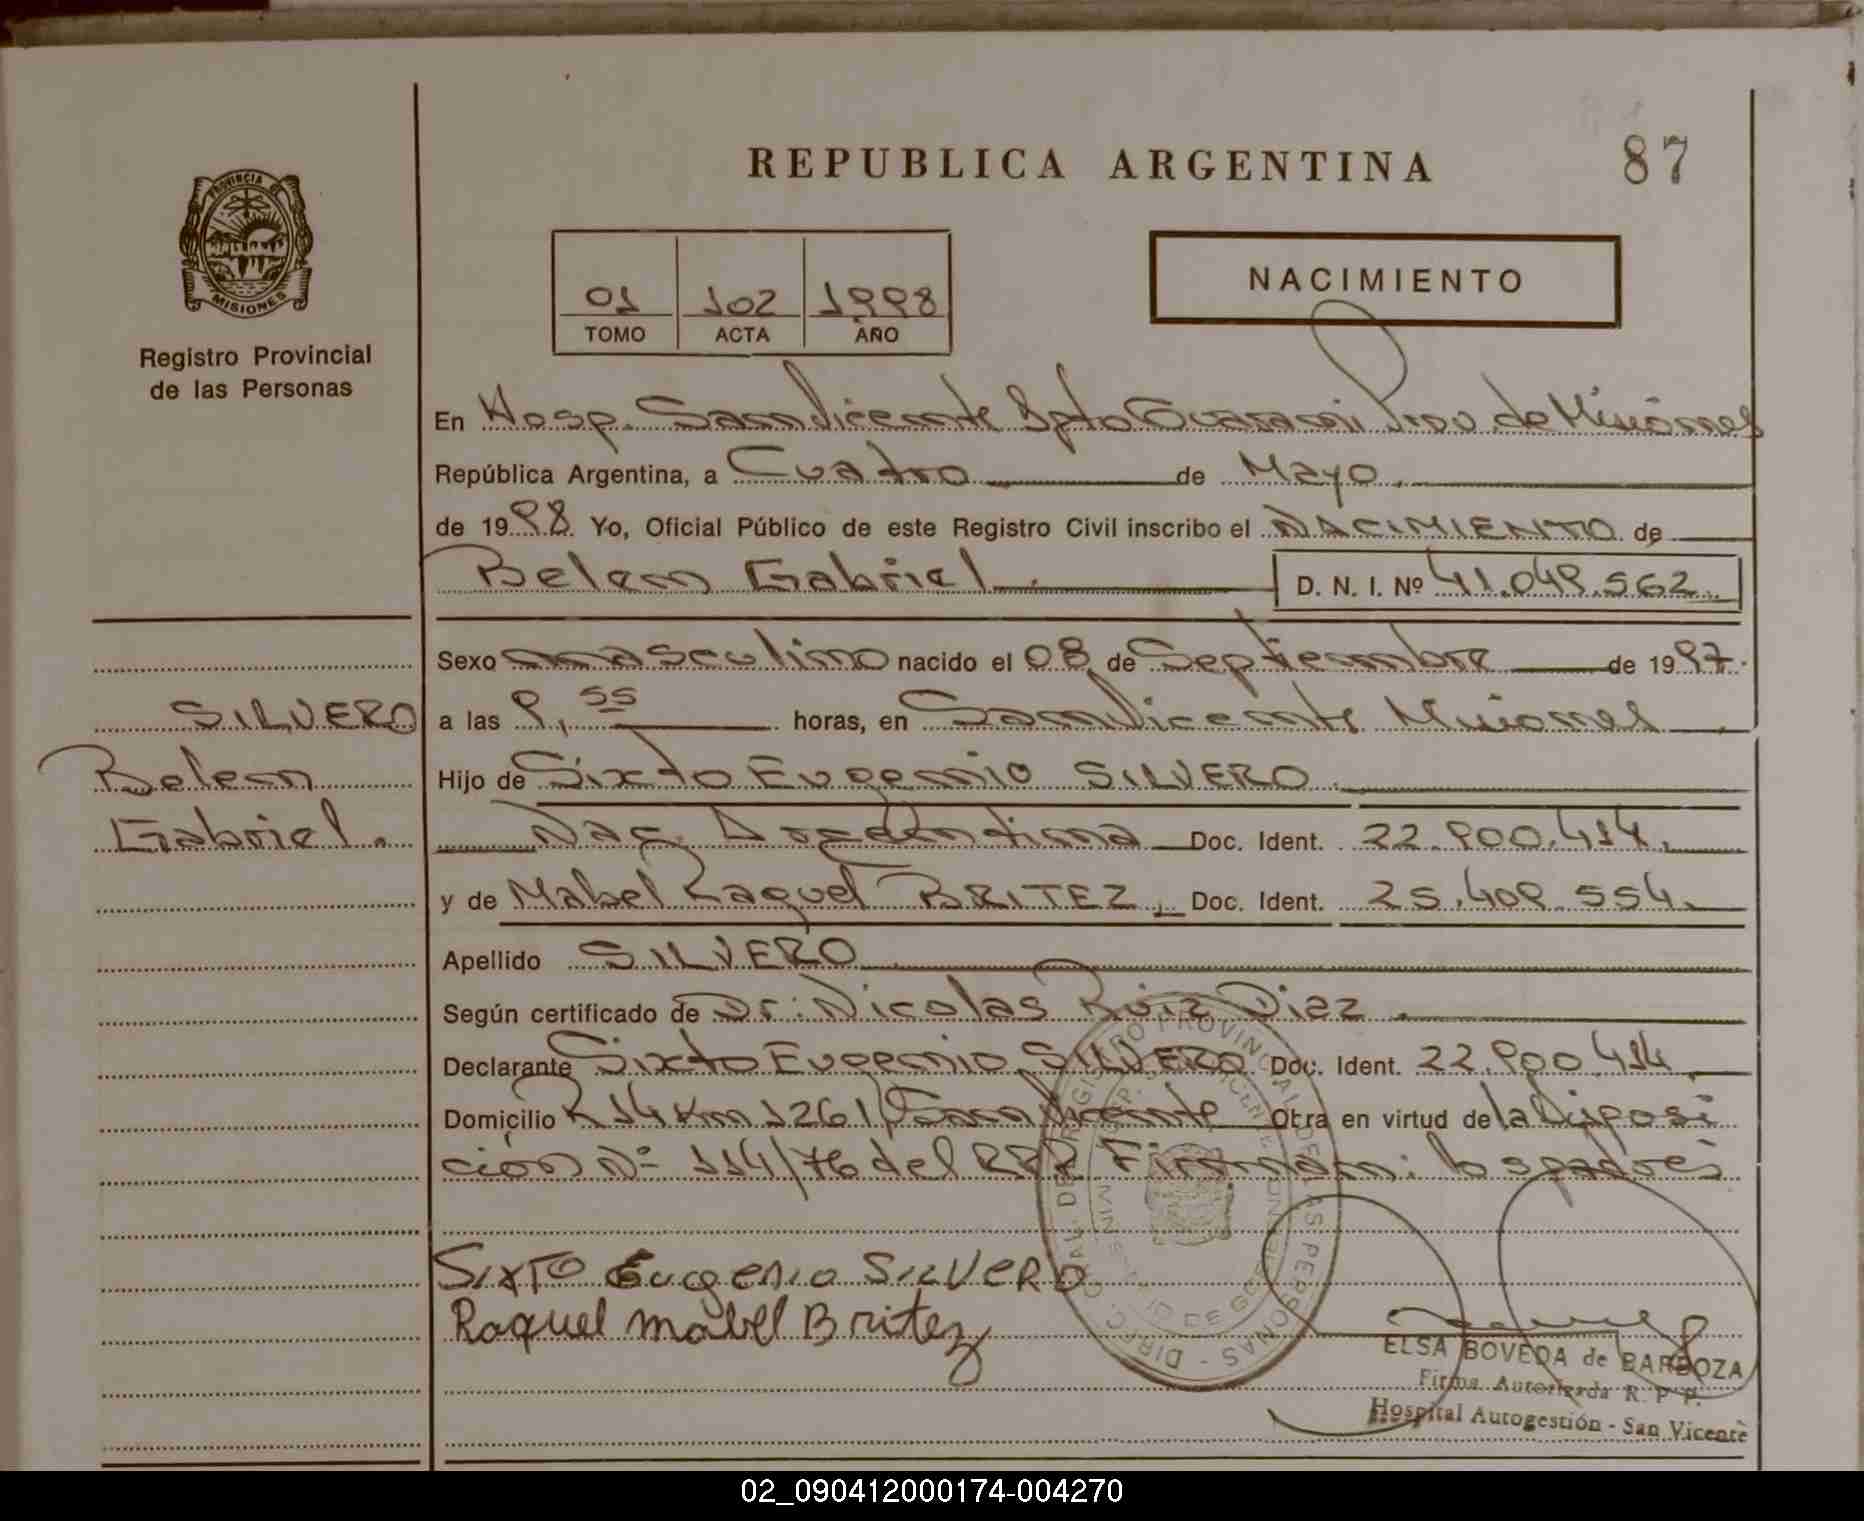 REPUBLICA ARGENTINA
87
PROVINCIA DE
MISIONES
Registro Provincial
de las Personas
01 102 1998
TOMO ACTA AÑO
NACIMIENTO
En Hosp. San Vicente Dpto Guarani Prov. de Misiones
República Argentina, a Cuatro de Mayo.
de 1998. Yo, Oficial Público de este Registro Civil inscribo el NACIMIENTO de
Belen Gabriel. D. N. I. Nº 41.049.562.
Sexo masculino nacido el 08 de Septiembre de 1997.
SILVERO
a las 9,55 horas, en San Vicente Misiones
Belen
Hijo de Sixto Eugenio SILVERO.
Gabriel.
Nac. Argentina Doc. Ident. 22.900.414.
y de Mabel Raquel BRITEZ, Doc. Ident. 25.409.554.
Apellido SILVERO.
Según certificado de Dr. Nicolas Ruiz Diaz.
Declarante Sixto Eugenio SILVERO Doc. Ident. 22.900.414
Domicilio R 14 Km 1261 San Vicente Otra en virtud de la Disposi
ción Nº 114/76 del RPP Firman: los padres
DIREC. GRAL. DEL REGISTRO PROVINCIAL DE LAS PERSONAS
SIXTO Eugenio SILVERO
Raquel Mabel Britez
ELSA BOVEDA de BARBOZA
Firma Autorizada R. P. P.
Hospital Autogestión - San Vicente
02_090412000174-004270